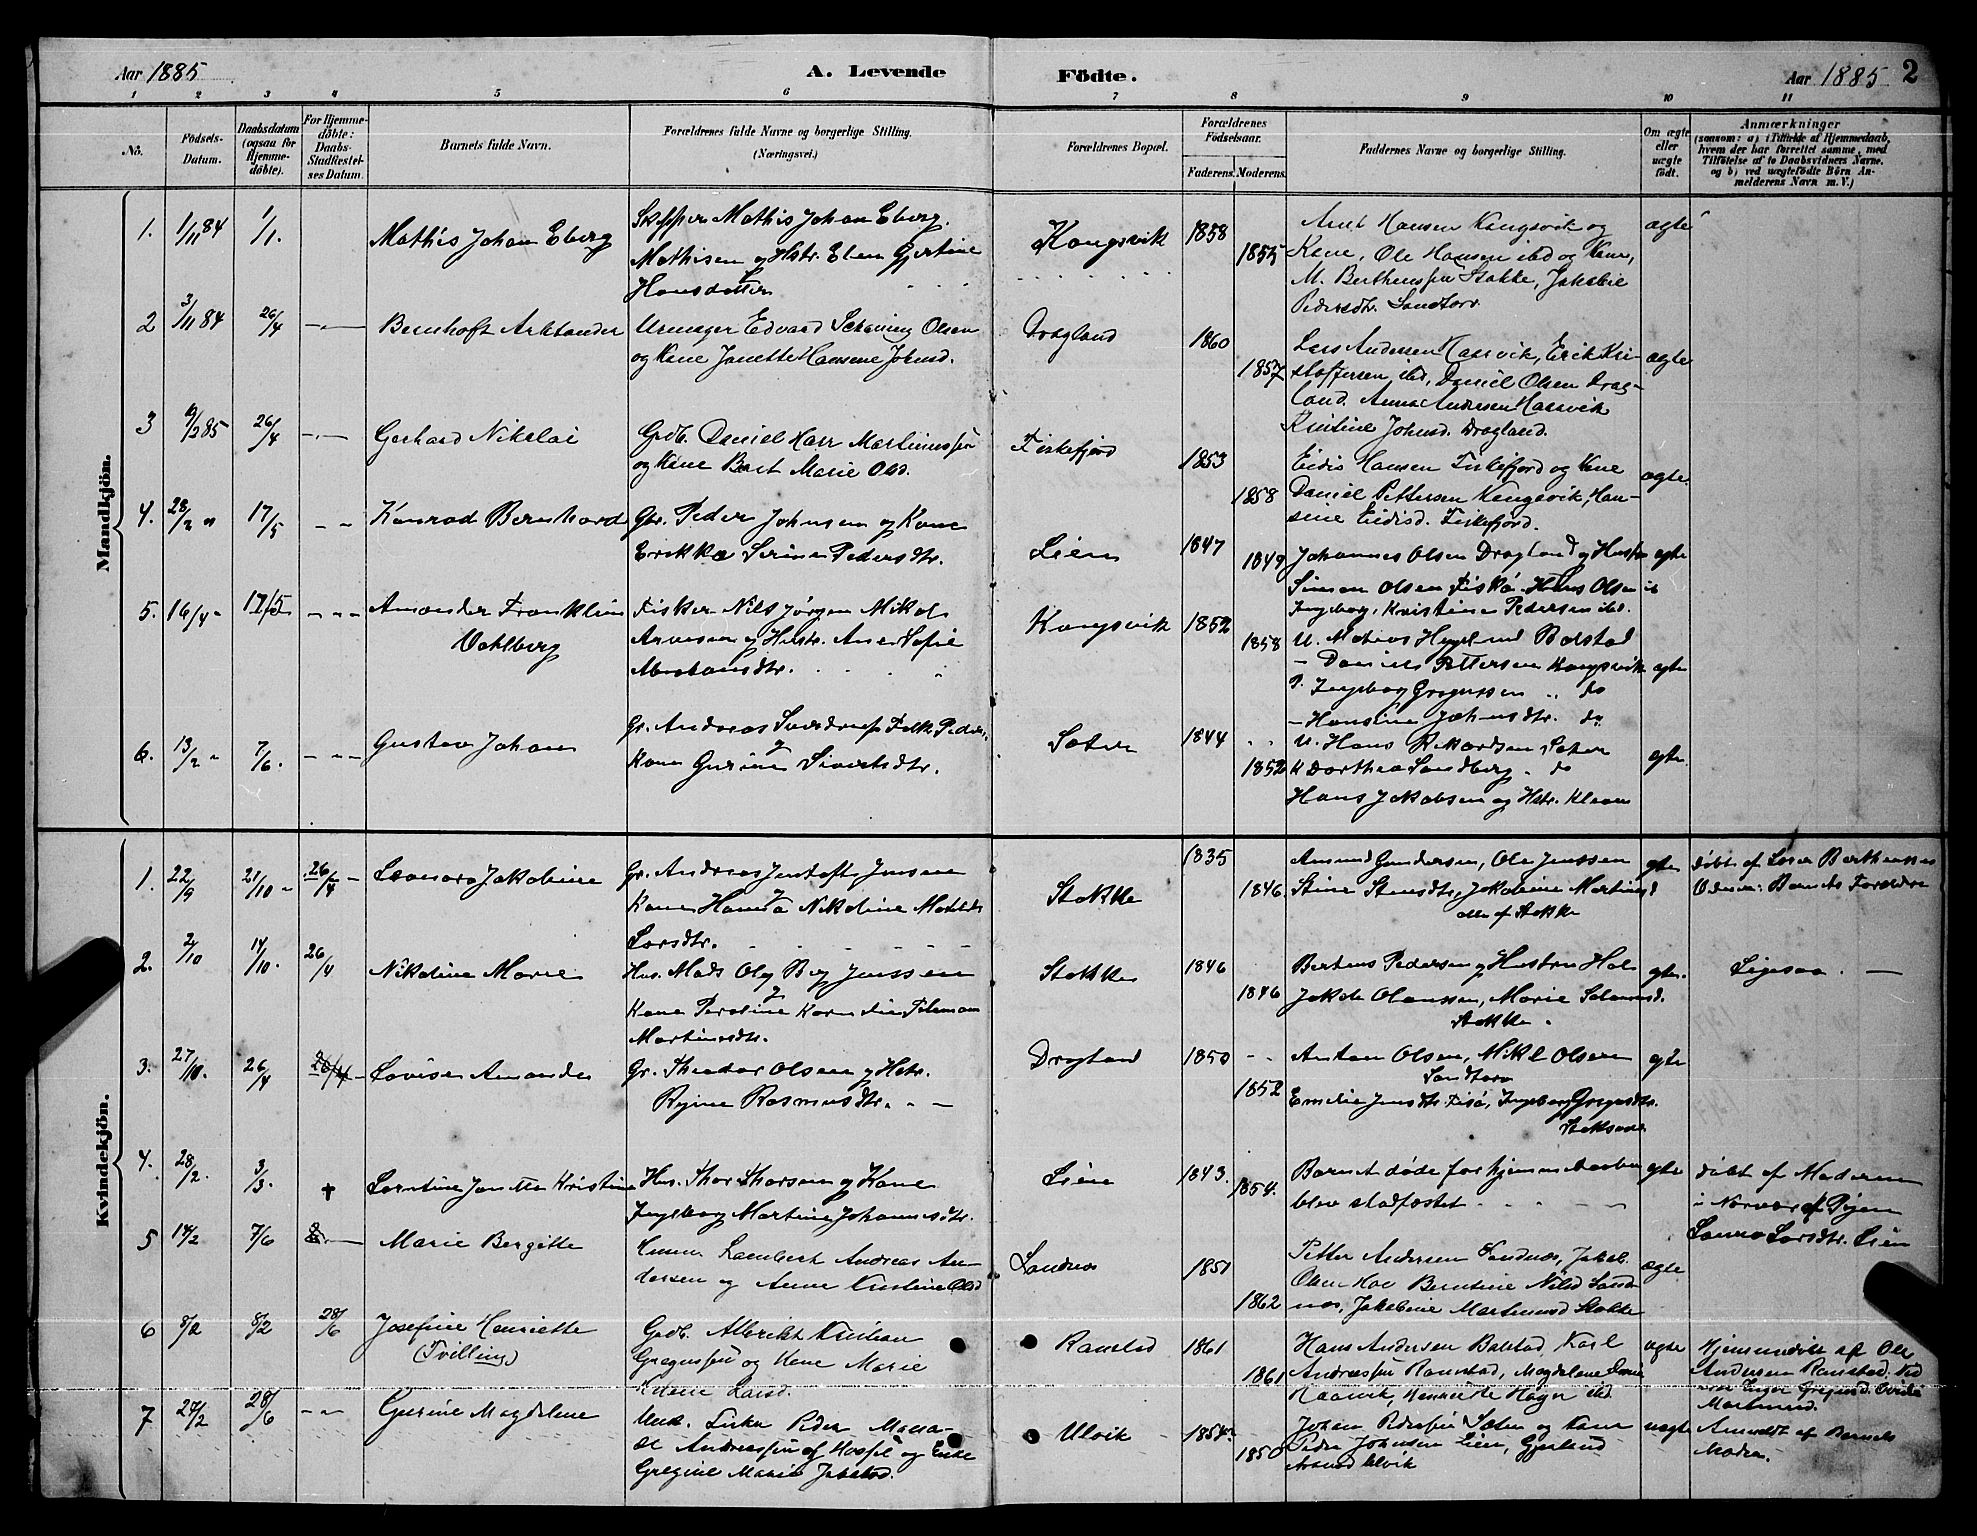 Aar 1885
A. Levende Födte.
Aar 1885 2
1 2 3 4 5 6 7 8 9 10 11
No.
Födsels-Datum.
Daabsdatum (ogsaa för Hjemme-döbte).
For Hjemme-döbte: Daabs-Stadfæstel-ses Datum.
Barnets fulde Navn.
Forældrenes fulde Navne og borgerlige Stilling. (Næringsvei.)
Forældrenes Bopæl.
Forældrenes Födselsaar.
Faderens. Moderens.
Faddernes Navne og borgerlige Stilling.
Om ægte eller uægte födt.
Anmærkninger
(saasom: a) i Tilfælde af Hjemmedaab, hvem der har forrettet samme, med Tilföielse af to Daabsvidners Navne. og b) ved uægtefödte Börn An-melderens Navn m. V.)
Mandkjön.
1. 1/11 84 1/1. Mathis Johan Eberg
Skipper Mathis Johan Eberg
Mathisen og Hstr. Elen Gjertine
Hansdatter
Kongsvik 1858 1855
Arnt Hansen Kongsvik og
Kone, Ole Hansen ibd og Kone,
M. Berthenssen Stokke, Jakobie
Pedersdtr. Sandtorv
ægte
2 3/11 84 26/4 Bernhoft Arktander
Urmager Edvard Schøning Olsen
og Kone Janette Hansine Johnsd.
Dragland 1860 1857
Lars Andersen Haasvik, Erik Kri-
stoffersen ibd, Daniel Olsen Drag-
land. Anna Andersen Haasvik
Kristine Johnsd. Dragland.
ægte
3 19/2 85 26/4 Gerhard Nikolai
Grdb. Daniel Harr Martinussen
og Kone Berit Marie Olsd.
Fiskefjord 1853 1858
Eidis Hansen Fiskefjord og Kone
Daniel Pettersen Kongsvik, Han-
sine Eidisd. Fiskefjord.
ægte
4. 28/2 " 17/5 Konrad Bernhard
Gr. Peder Johnsen og Kone
Erikka Serine Pedersdtr.
Lien 1847 1849
Johannes Olsen Dragland og Hustru
Simon Olsen Fiskø. Hans Olsen ib
Ingeborg, Kristine Pedersen ibd.
ægte
5. 16/4 - 17/5 Amandor Franklin
Vahlberg
Fisker Nils Jørgen Mikal
Arnesen og Hstr. Ane Sofie
Kongsvik 1852 1858
U. Matias Hegelund Bolstad
- Daniels Pettersen Kongsvik
P. Ingeborg Gregussen " do
- Hansine Johnsdtr. do
ægte
6. 13/2 - 7/6. Gustav Johan
Gr. Andreas Sverdrup Falk Peders.
Kone Gurine Sivertsdtr.
Sæter 1844 1852
U. Hans Rikardsen Sæter
K Dorthea Sandberg. do
Hans Jakobsen og Hstr. Kleven
ægte
Kvindekjön.
1. 22/9 21/10 - 26/4 - Leonora Jakobine
Gr. Andreas Jentoft Jensen
Kone Hanna Nikoline Matilde
Larsdtr.
Stokke 1835 1846
Amund Gundersen, Ole Jenssen
Stine Stensdtr, Jakobine Martinsd
alle af Stokke
ægte
døbt af Lars Berthenssen
Vidner: Barnets Forældre
2. 2/10 14/10. 26/4 Nikoline Marie
Hus. Mads Olaj Berg Jenssen
Kone Peroline Karn
Martinsdtr.
Stokke 1846 1846
Bertens Pedersen og Hustru Hol
Jakob Olaussen, Marie Salamonsd.
Stokke.
ægte. Ligesaa.
3. 27/10. 26/4 26/4 Lovise Amanda
Gr. Theodor Olsen og Hstr.
Regine Rasmusdtr.
Dragland 1850 1852
Anton Olsen, Mikl Olsen
Sandtorv
Emelie Jensdtr. Fisø, Ingeborg Gregusdtr.
ægte
4. 28/2. 3/3. † Lorntine Janetta Kristine
Hus. Thor Thorsen og Kone
Ingeborg Martine Johannesdtr.
Lien 1843. 1854.
Barnet døde før hjemmedaaben
blev stadfæstet
ægte
døbt af Moderen
i Nærvær af Pigen
Laura Larsdtr. Lien
5 14/2 7/6 Marie Bergitte
Lambert Andreas An-
dersen og Anne Kristine Olsd
Sandnes 1851 1862
Petter Andersen Sandnæs, Jakob
Olsen Hol Berntine Nilsd Sand
næs, Jakobine Martinusd Stokke
ægte
6 8/2 8/2 28/6 Josefine Henriette
(Tvilling)
Grdb. Albrikt Kristian
Gregussen og Kone Marie
Larsd.
Ramstad 1861 1861
Hans Andersen Bolstad, Karl
Andreassen Ramstad, Magdalene
Haasvik, Henriette Hagn ibd
ægte
Hjemmedøbt af Ole
Andersen Ramstad. Vid
ner Inger Gregusd.
Martinusd.
7 24/2 28/6 Gurine Magdalene
Unk. Fisker Peder Mona-
og Enke
Gregine Marie Jakobsd.
Ulvik 1854 1850
Johan Pedersen Sæter og Kone
Peder Johnsen Lien, Gjerlaud
Ulvik
uægte
Anmeldt af Barnets
Moder.